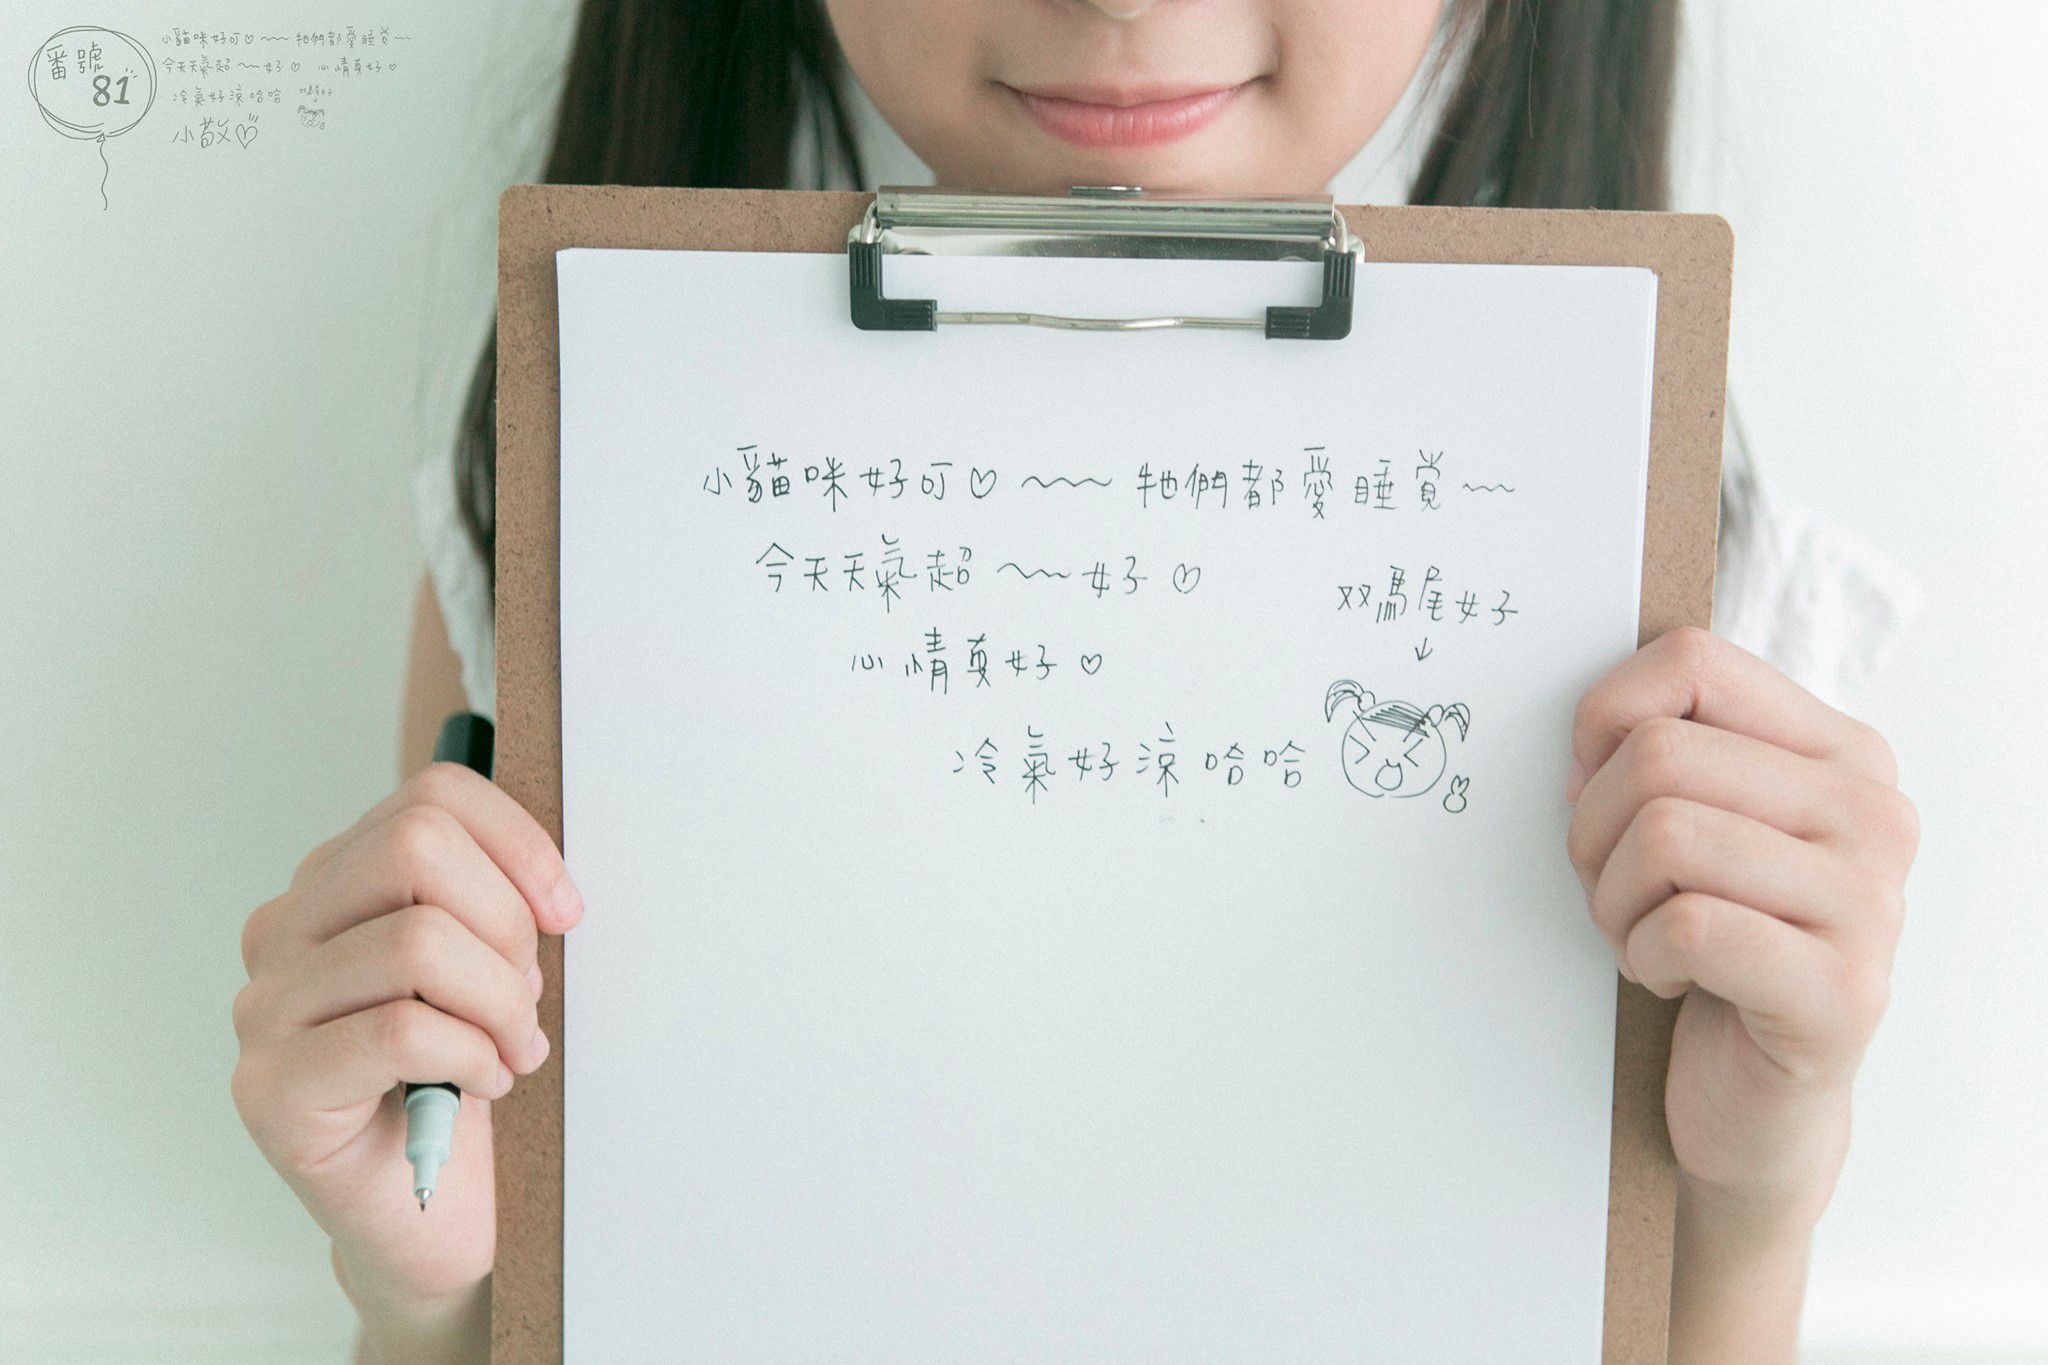 番號
81
小貓咪好可♡~~~牠們都愛睡覚~~
今天天氣超~~好♡ 心情真好♡
冷氣好涼哈哈 双馬尾女子
小敬♡
小貓咪好可♡~~~牠們都愛睡覚~~
今天天氣超~~好♡
双馬尾女子
↓
心情真好♡
冷氣好涼哈哈